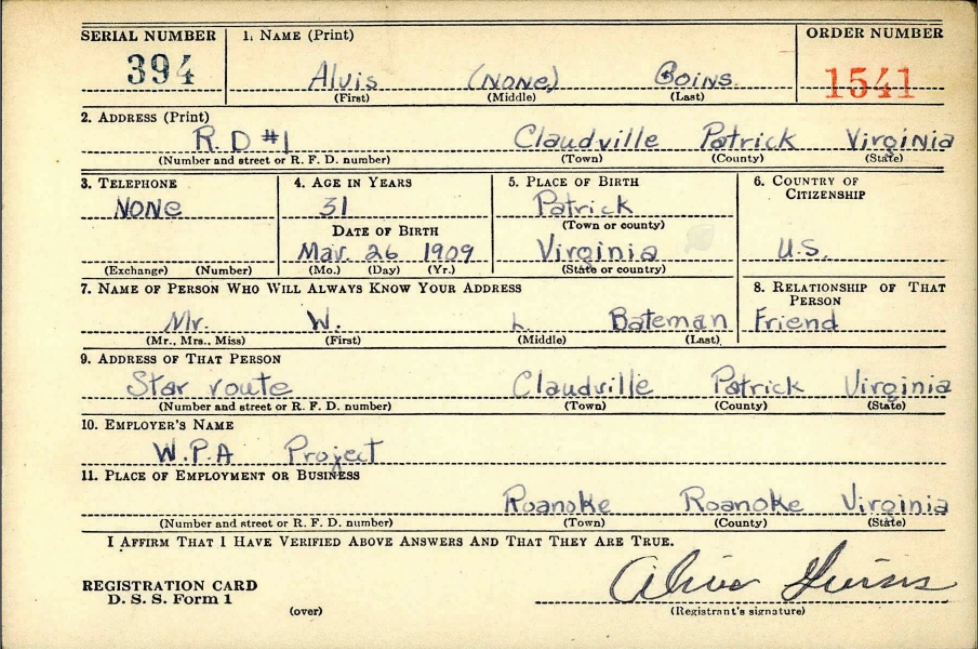 SERIAL NUMBER 1. NAME (Print) ORDER NUMBER
394 Alvis (NONE) Goins 1541
(First) (Middle) (Last)
2. ADDRESS (Print)
R. D #1 Claudville Patrick Virginia
(Number and street or R. F. D. number) (Town) (County) (State)
3. TELEPHONE 4. AGE IN YEARS 5. PLACE OF BIRTH 6. COUNTRY OF CITIZENSHIP
NONE 31 Patrick
(Town or county)
DATE OF BIRTH
Mar. 26 1909 Virginia U.S.
(Exchange) (Number) (Mo.) (Day) (Yr.) (State or country)
7. NAME OF PERSON WHO WILL ALWAYS KNOW YOUR ADDRESS 8. RELATIONSHIP OF THAT PERSON
Mr. W. L. Bateman Friend
(Mr., Mrs., Miss) (First) (Middle) (Last)
9. ADDRESS OF THAT PERSON
Star route Claudville Patrick Virginia
(Number and street or R. F. D. number) (Town) (County) (State)
10. EMPLOYER'S NAME
W.P.A Project
11. PLACE OF EMPLOYMENT OR BUSINESS
Roanoke Roanoke Virginia
(Number and street or R. F. D. number) (Town) (County) (State)
I AFFIRM THAT I HAVE VERIFIED ABOVE ANSWERS AND THAT THEY ARE TRUE.
REGISTRATION CARD
D. S. S. Form 1
(over) (Registrant's signature)